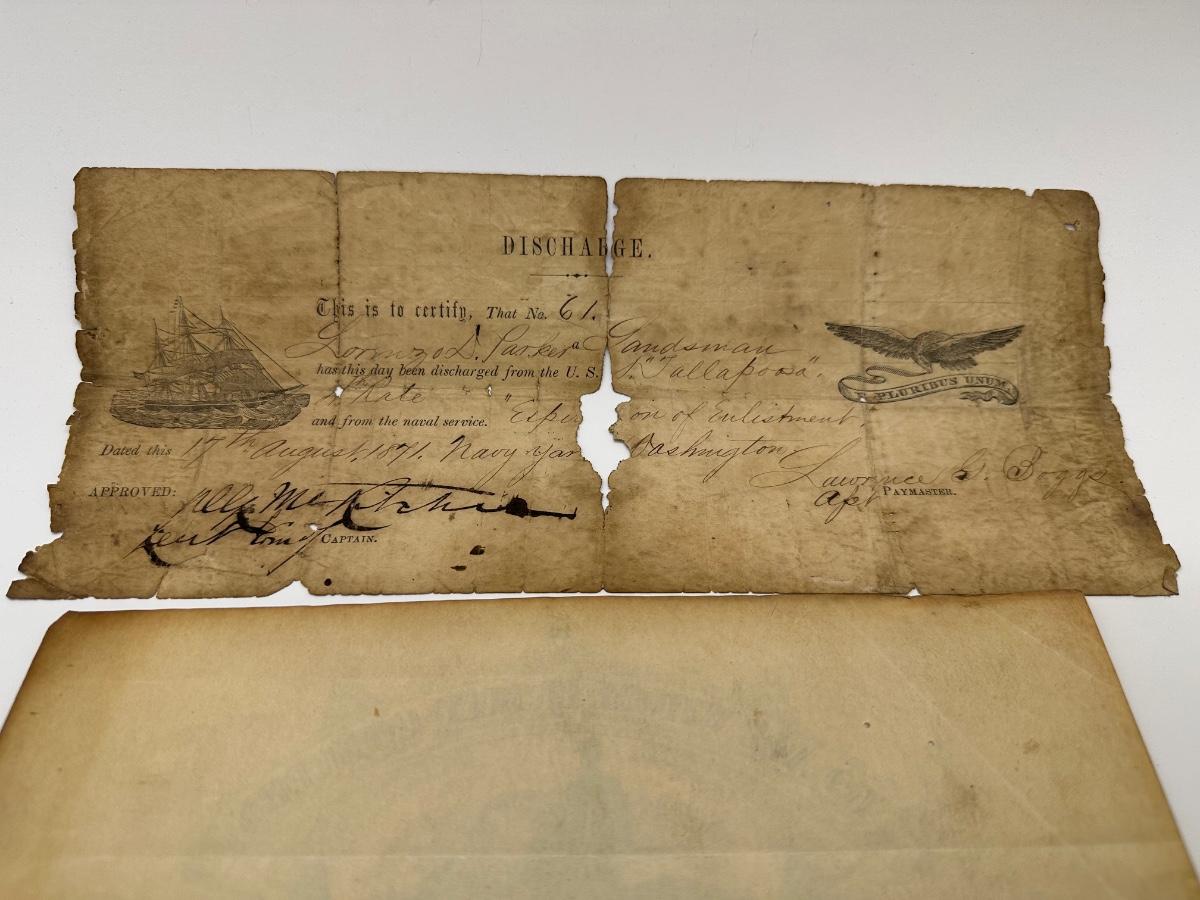 DISCHARGE.
This is to certify, That No. 61.
Lorenzo D. Parker a Landsman
has this day been discharged from the U. S. S. "Tallapoosa".
4th Rate
and from the naval service. "Expi on of Enlistment,
Dated this 17th August, 1871. Navy Yar Washington
Lawrence G. Boggs
PAYMASTER.
APPROVED:
CAPTAIN.
PLURIBUS UNUM